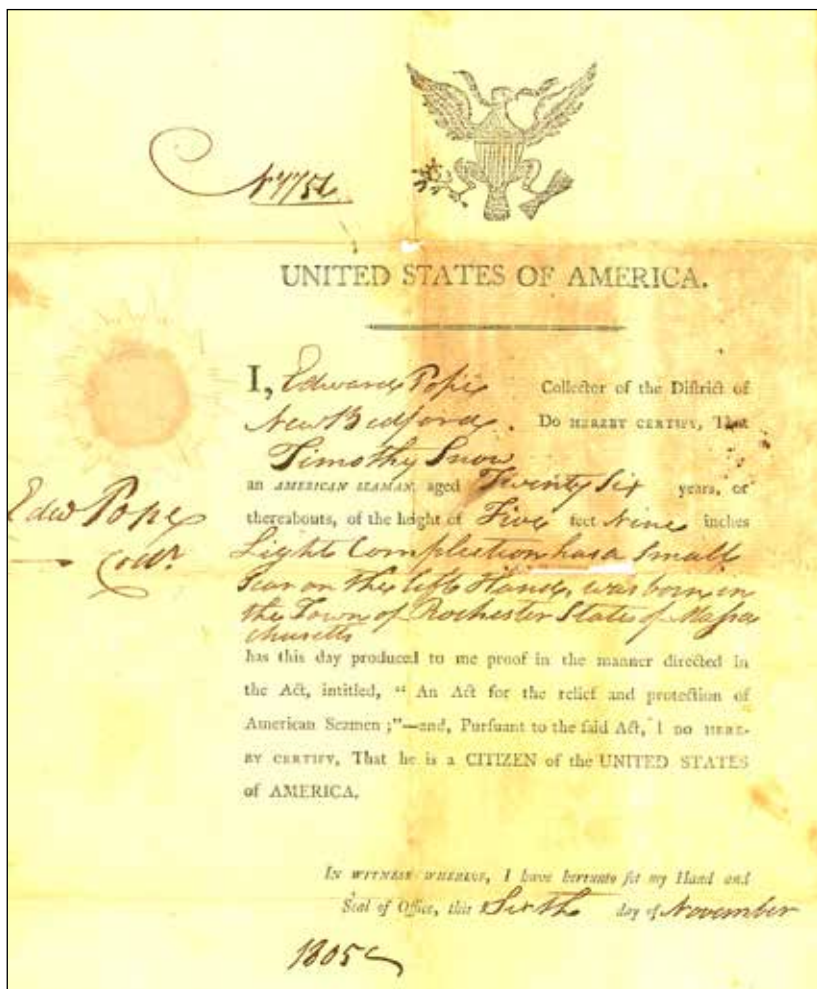 UNITED STATES OF AMERICA.
I, Edward Pope Collector of the District of
New Bedford. Do HEREBY CERTIFY, That
Timothy Snow
an AMERICAN SEAMAN, aged Twenty Six years, or
thereabouts, of the height of Five feet Nine inches
Light Complection has a Small
Scar on the left Hand, was born in
the Town of Rochester State of Massa
chusetts
Edw Pope
Collr.
has this day produced to me proof in the manner directed in
the Act, intitled, “ An Act for the relief and protection of
American Seamen ;”—and, Pursuant to the said Act, I DO HERE-
BY CERTIFY, That he is a CITIZEN of the UNITED STATES
of AMERICA.
IN WITNESS WHEREOF, I have hereunto set my Hand and
Seal of Office, this Sixth day of November
1805